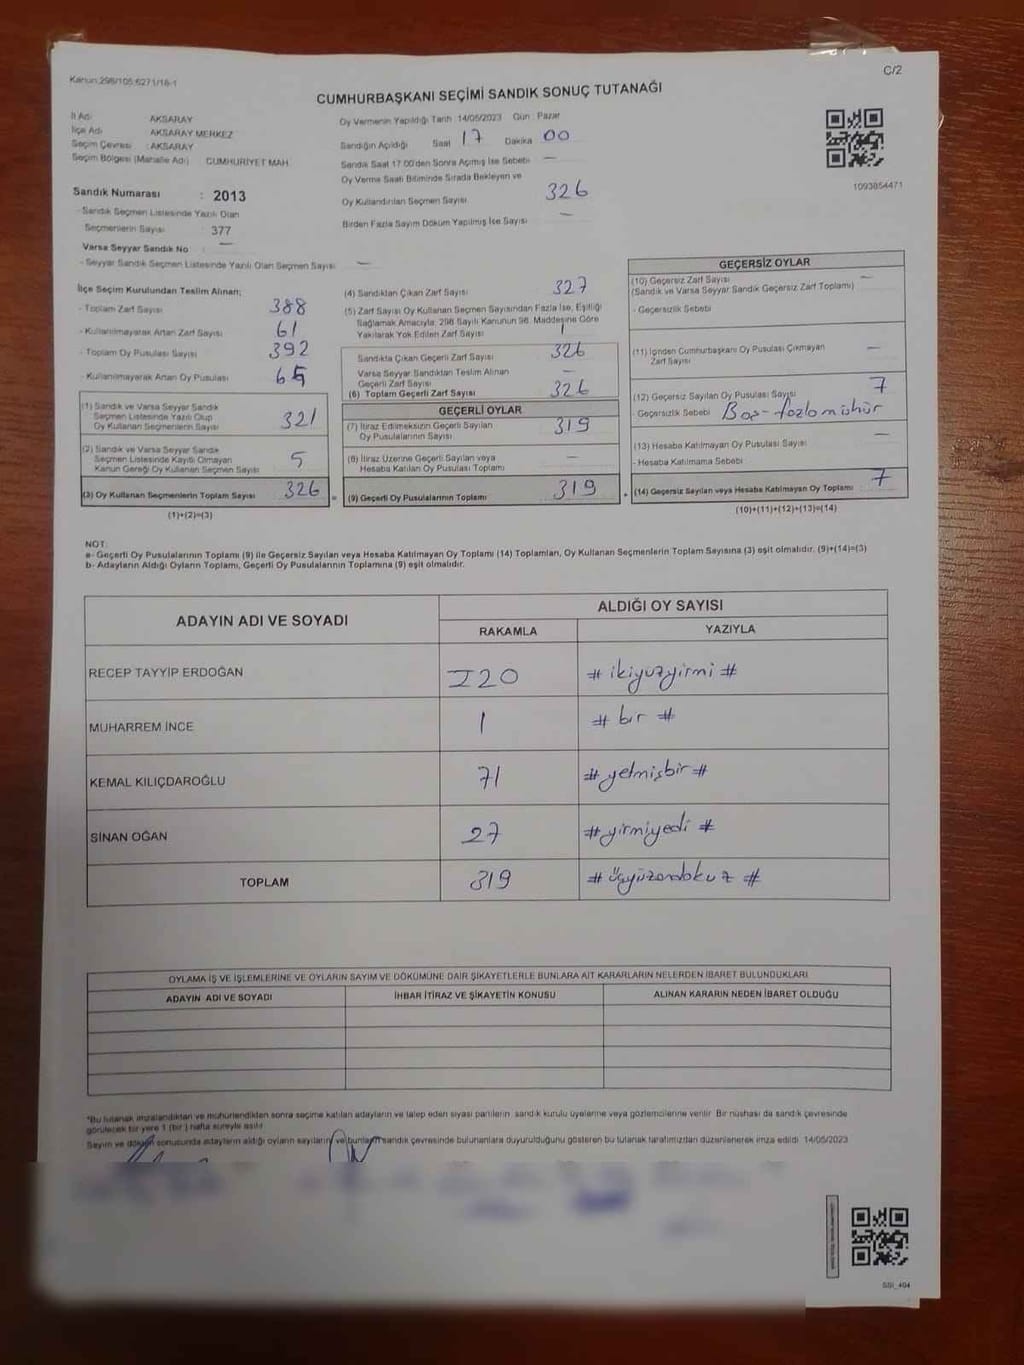 Kanun:298/105 6271/16-1
C/2
CUMHURBAŞKANI SEÇİMİ SANDIK SONUÇ TUTANAĞI
İl Adı AKSARAY
İlçe Adı AKSARAY MERKEZ
Seçim Çevresi : AKSARAY
Seçim Bölgesi (Mahalle Adı) CUMHURİYET MAH.
Sandık Numarası : 2013
- Sandık Seçmen Listesinde Yazılı Olan
Seçmenlerin Sayısı : 377
Varsa Seyyar Sandık No : —
- Seyyar Sandık Seçmen Listesinde Yazılı Olan Seçmen Sayısı —
Oy Vermenin Yapıldığı Tarih :14/05/2023 Gün : Pazar
Sandığın Açıldığı Saat 17 Dakika 00
Sandık Saat 17.00'den Sonra Açılmış İse Sebebi —
Oy Verme Saati Bitiminde Sırada Bekleyen ve
Oy Kullandırılan Seçmen Sayısı 326
Birden Fazla Sayım Döküm Yapılmış İse Sayısı —
1093854471
İlçe Seçim Kurulundan Teslim Alınan;
- Toplam Zarf Sayısı 388
- Kullanılmayarak Artan Zarf Sayısı 61
- Toplam Oy Pusulası Sayısı 392
- Kullanılmayarak Artan Oy Pusulası
(1) Sandık ve Varsa Seyyar Sandık
Seçmen Listesinde Yazılı Olup
Oy Kullanan Seçmenlerin Sayısı 321
(2) Sandık ve Varsa Seyyar Sandık
Seçmen Listesinde Kayıtlı Olmayan
Kanun Gereği Oy Kullanan Seçmen Sayısı 5
(3) Oy Kullanan Seçmenlerin Toplam Sayısı 326
(1)+(2)=(3)
(4) Sandıktan Çıkan Zarf Sayısı 327
(5) Zarf Sayısı Oy Kullanan Seçmen Sayısından Fazla İse, Eşitliği
Sağlamak Amacıyla, 298 Sayılı Kanunun 98. Maddesine Göre
Yakılarak Yok Edilen Zarf Sayısı 1
Sandıkta Çıkan Geçerli Zarf Sayısı 326
Varsa Seyyar Sandıktan Teslim Alınan
Geçerli Zarf Sayısı —
(6) Toplam Geçerli Zarf Sayısı 326
GEÇERLİ OYLAR
(7) İtiraz Edilmeksizin Geçerli Sayılan
Oy Pusulalarının Sayısı 319
(8) İtiraz Üzerine Geçerli Sayılan veya
Hesaba Katılan Oy Pusulası Toplamı —
(9) Geçerli Oy Pusulalarının Toplamı 319
GEÇERSİZ OYLAR
(10) Geçersiz Zarf Sayısı —
(Sandık ve Varsa Seyyar Sandık Geçersiz Zarf Toplamı)
- Geçersizlik Sebebi
(11) İçinden Cumhurbaşkanı Oy Pusulası Çıkmayan
Zarf Sayısı —
(12) Geçersiz Sayılan Oy Pusulası Sayısı 7
- Geçersizlik Sebebi Boş-fazla mühür
(13) Hesaba Katılmayan Oy Pusulası Sayısı —
- Hesaba Katılmama Sebebi
(14) Geçersiz Sayılan veya Hesaba Katılmayan Oy Toplamı 7
(10)+(11)+(12)+(13)=(14)
NOT:
a- Geçerli Oy Pusulalarının Toplamı (9) ile Geçersiz Sayılan veya Hesaba Katılmayan Oy Toplamı (14) Toplamları, Oy Kullanan Seçmenlerin Toplam Sayısına (3) eşit olmalıdır. (9)+(14)=(3)
b- Adayların Aldığı Oyların Toplamı, Geçerli Oy Pusulalarının Toplamına (9) eşit olmalıdır.
ADAYIN ADI VE SOYADI ALDIĞI OY SAYISI
RAKAMLA YAZIYLA
RECEP TAYYİP ERDOĞAN 220 # ikiyüzyirmi #
MUHARREM İNCE 1 # bir #
KEMAL KILIÇDAROĞLU 71 # yetmişbir #
SİNAN OĞAN 27 # yirmiyedi #
TOPLAM 319 # üçyüzondokuz #
OYLAMA İŞ VE İŞLEMLERİNE VE OYLARIN SAYIM VE DÖKÜMÜNE DAİR ŞİKAYETLERLE BUNLARA AİT KARARLARIN NELERDEN İBARET BULUNDUKLARI
ADAYIN ADI VE SOYADI İHBAR İTİRAZ VE ŞİKAYETİN KONUSU ALINAN KARARIN NEDEN İBARET OLDUĞU
*Bu tutanak imzalandıktan ve mühürlendikten sonra seçime katılan adayların ve talep eden siyasi partilerin sandık kurulu üyelerine veya gözlemcilerine verilir. Bir nüshası da sandık çevresinde
görülecek bir yere 1 (bir) hafta süreyle asılır.
Sayım ve döküm sonusunda adayların aldığı oyların sayılarını ve bunların sandık çevresinde bulunanlara duyurulduğunu gösteren bu tutanak tarafımızdan düzenlenerek imza edildi. 14/05/2023
SSI_404